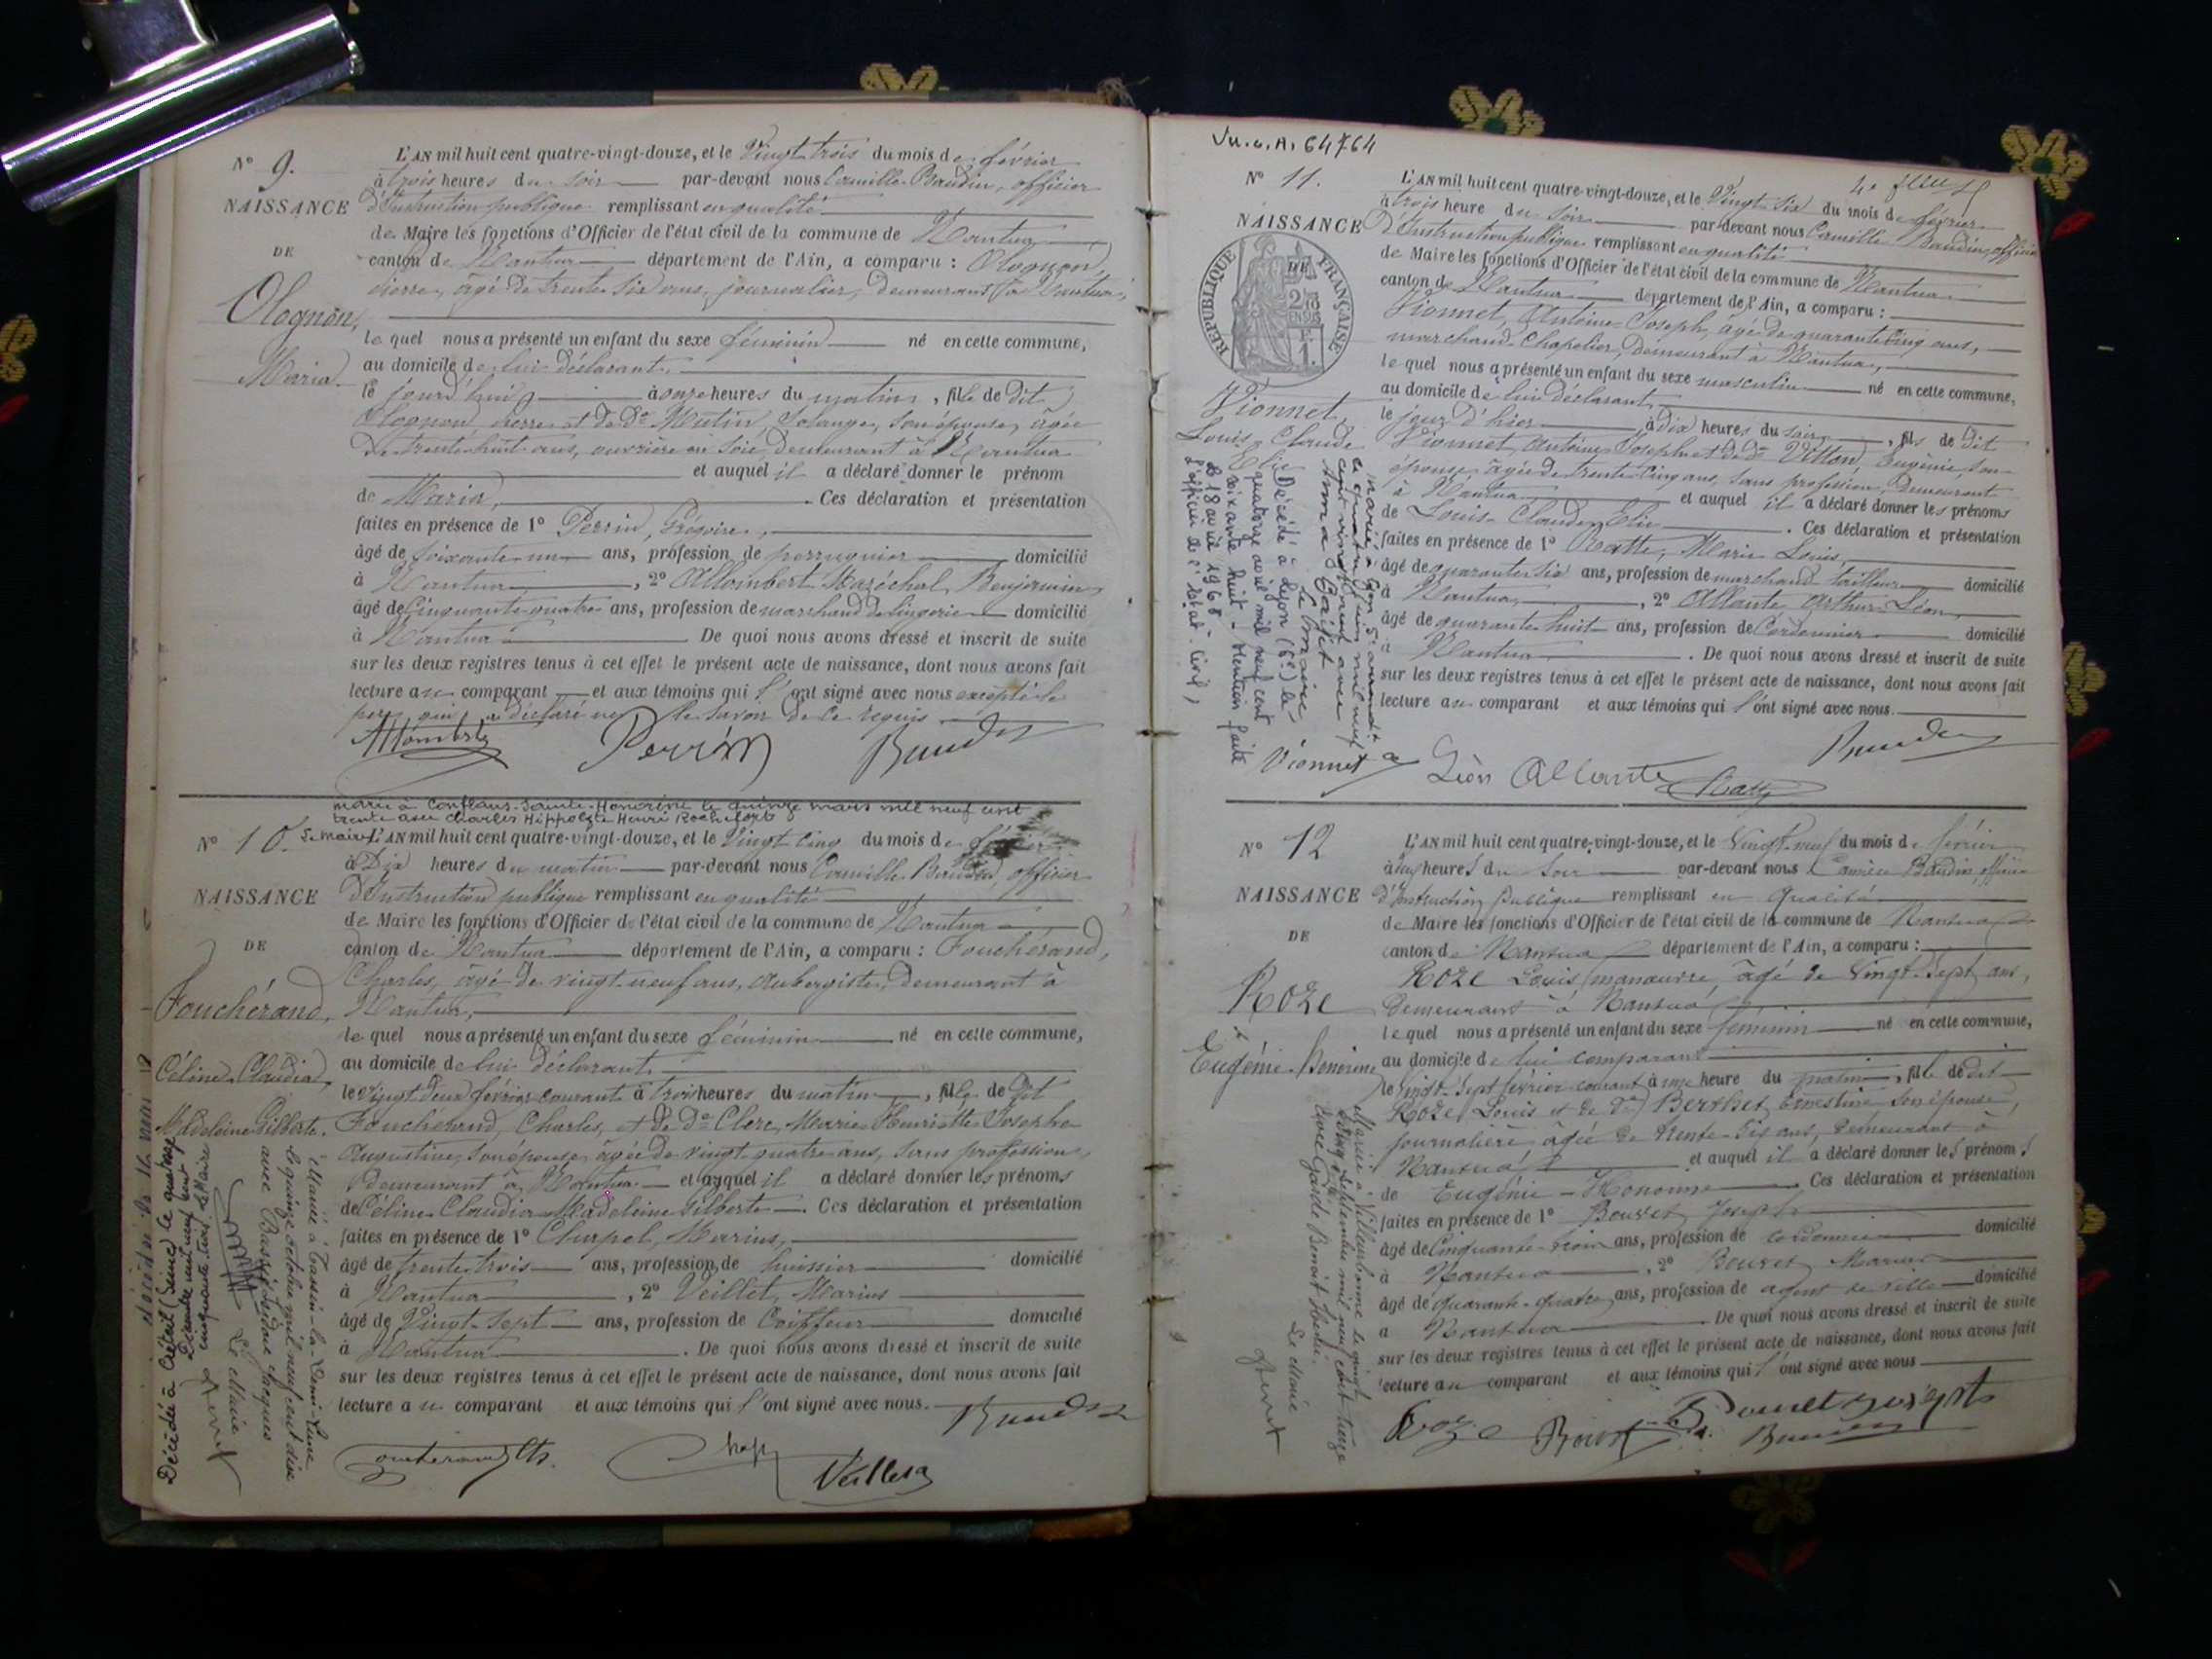 N° 9.
NAISSANCE
DE
Olognon,
Maria.
L'AN mil huit cent quatre-vingt-douze, et le Vingt trois du mois de février
à trois heures du soir par-devant nous Camille Baudin, officier
d'Instruction publique remplissant en qualité
de Maire les fonctions d'Officier de l'état civil de la commune de Nantua
canton de Nantua département de l'Ain, a comparu : Olognon,
Pierre, âgé de trente six ans, journalier, demeurant à Nantua,
le quel nous a présenté un enfant du sexe féminin né en cette commune,
au domicile de lui déclarant
le jourd'hui à onze heures du matin, fille de dit
Olognon Pierre et de De Mutin, Solange, son épouse, âgée
de trente huit ans, ouvrière en soie, demeurant à Nantua
et auquel il a déclaré donner le prénom
de Maria, Ces déclaration et présentation
faites en présence de 1° Perrin, Grégoire,
âgé de soixante un ans, profession de perruquier domicilié
à Nantua, 2° Allombert Maréchal, Benjamin,
âgé de Cinquante quatre ans, profession de marchand de lingerie domicilié
à Nantua De quoi nous avons dressé et inscrit de suite
sur les deux registres tenus à cet effet le présent acte de naissance, dont nous avons fait
lecture au comparant et aux témoins qui l'ont signé avec nous excepté le
père qui a déclaré ne le savoir de ce requis
Perrin
marié à Conflans-Sainte-Honorine le quinze mars mil neuf cent
trente avec Charles Hippolyte Henri Rochefort
Le Maire
N° 10.
NAISSANCE
DE
Fouchérand,
Céline, Claudia,
Madeleine Gilberte.
L'AN mil huit cent quatre-vingt-douze, et le Vingt cinq du mois de février
à Dix heures du matin par-devant nous Camille Baudin, officier
d'Instruction publique remplissant en qualité
de Maire les fonctions d'Officier de l'état civil de la commune de Nantua
canton de Nantua département de l'Ain, a comparu : Fouchérand,
Charles, âgé de vingt neuf ans, aubergiste, demeurant à
Nantua,
le quel nous a présenté un enfant du sexe féminin né en cette commune,
au domicile de lui déclarant
le Vingt deux février courant à trois heures du matin, fille de dit
Fouchérand, Charles, et de De Clerc, Marie Henriette Josephe
Augustine, son épouse, âgée de vingt quatre ans, sans profession,
demeurant à Nantua et auquel il a déclaré donner les prénoms
de Céline Claudia Madeleine Gilberte. Ces déclaration et présentation
faites en présence de 1° Chapel, Marius,
âgé de trente trois ans, profession de huissier domicilié
à Nantua, 2° Veillet, Marius
âgé de Vingt sept ans, profession de Coiffeur domicilié
à Nantua. De quoi nous avons dressé et inscrit de suite
sur les deux registres tenus à cet effet le présent acte de naissance, dont nous avons fait
lecture au comparant et aux témoins qui l'ont signé avec nous.
Mariée à Tassin-la-Demi-Lune
le quinze octobre mil neuf cent dix
avec
Jacques
Le Maire
Décédée à Créteil (Seine) le quinze
Décembre mil neuf cent
cinquante trois Le Maire
Vu. a. A. 64764
N° 11.
NAISSANCE
DE
RÉPUBLIQUE FRANÇAISE
Vionnet,
Louis, Claude
Elie
L'AN mil huit cent quatre-vingt-douze, et le Vingt six du mois de février
à trois heure du soir par-devant nous Camille Baudin, officier
d'Instruction publique remplissant en qualité
de Maire les fonctions d'Officier de l'état civil de la commune de Nantua
canton de Nantua département de l'Ain, a comparu :
Vionnet, Antoine Joseph, âgé de quarante cinq ans,
marchand Chapelier, demeurant à Nantua,
le quel nous a présenté un enfant du sexe masculin né en cette commune,
au domicile de lui déclarant
le jour d'hier à Dix heures du soir, fils de dit
Vionnet Antoine Joseph et de De Vitton, Eugénie, son
épouse, âgée de trente cinq ans, sans profession, demeurant
à Nantua et auquel il a déclaré donner les prénoms
de Louis Claude Elie. Ces déclaration et présentation
faites en présence de 1° Ratte, Marie Louis,
âgé de quarante six ans, profession de marchand tailleur domicilié
à Nantua, 2° Allante, Arthur Léon,
âgé de quarante huit ans, profession de Cordonnier domicilié
à Nantua. De quoi nous avons dressé et inscrit de suite
sur les deux registres tenus à cet effet le présent acte de naissance, dont nous avons fait
lecture au comparant et aux témoins qui l'ont signé avec nous.
Vionnet Léon Allante Ratte
Décédé à Lyon (6e) le
quatorze avril mil neuf cent
soixante huit - Mention faite
le 18 avril 1968 -
l'officier de l'Etat-Civil,
N° 12
NAISSANCE
DE
Roze
Eugénie-Honorine
L'AN mil huit cent quatre-vingt-douze, et le Vingt-neuf du mois de février
heures du soir par-devant nous Camille Baudin officier
d'Instruction publique remplissant en qualité
de Maire les fonctions d'Officier de l'état civil de la commune de Nantua
canton de Nantua département de l'Ain, a comparu :
Roze Louis, manœuvre, âgé de Vingt-Sept ans,
demeurant à Nantua
le quel nous a présenté un enfant du sexe féminin né en cette commune,
au domicile de lui comparant
le Vingt-Sept février courant à une heure du matin, fille de dit
Roze Louis et de De Berthet Ernestine son épouse,
journalière, âgée de trente-six ans, demeurant à
Nantua et auquel il a déclaré donner les prénoms
de Eugénie-Honorine Ces déclaration et présentation
faites en présence de 1° Bouvet Joseph
âgé de Cinquante-trois ans, profession de cordonnier domicilié
à Nantua, 2° Bouvet Marius
âgé de quarante-quatre ans, profession de agent de ville domicilié
à Nantua De quoi nous avons dressé et inscrit de suite
sur les deux registres tenus à cet effet le présent acte de naissance, dont nous avons fait
lecture au comparant et aux témoins qui l'ont signé avec nous
Roze
Mariée à Villeurbanne le vingt
septembre mil neuf cent treize
avec
Le Maire